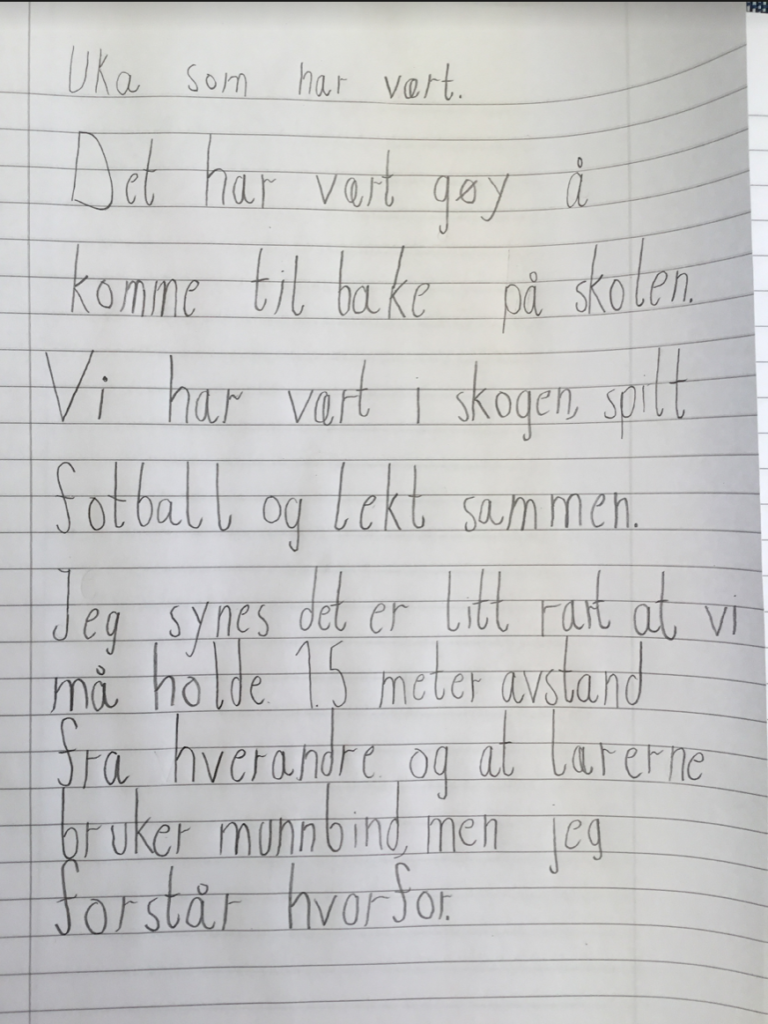 Uka som har vært.
Det har vært gøy å
komme til bake på skolen.
Vi har vært i skogen, spilt
fotball og lekt sammen.
Jeg synes det er litt rart at vi
må holde 1.5 meter avstand
fra hverandre og at lærerne
bruker munnbind, men jeg
forstår hvorfor.